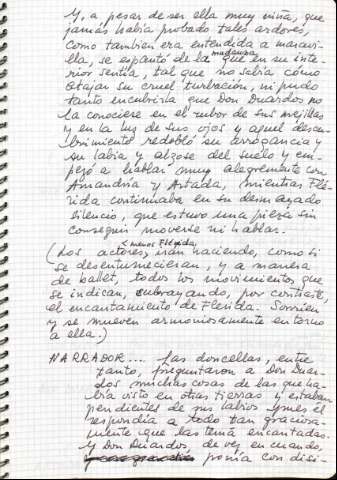 Y, a pesar de ser ella muy niña, que
jamás había probado tales ardores,
como también era entendida a maravi-
lla, se espantó de la mudanza que en su inte-
rior sentía, tal que no sabía cómo
atajar su cruel turbación, ni pudo
tanto encubrirla que Don Duardos no
la conociese en el rubor de sus mejillas
y en la luz de sus ojos y aquel descu-
brimiento redobló su arrogancia y
su labia y alzóse del suelo y em-
pezó a hablar muy alegremente con
Amandria y Artada, mientras Flé-
rida continuaba en su desmayado
silencio, que estuvo una pieza sin
conseguir moverse ni hablar.
(Los actores, menos Flérida, irán haciendo, como si
se desentumecieran, y a manera
de ballet, todos los movimientos que
se indican, subrayando, por contraste,
el encantamiento de Flérida. Sonríen
y se mueven armoniosamente en torno
a ella.)
NARRADOR... Las doncellas, entre
tanto, preguntaron a Don Duar-
dos muchas cosas de las que ha-
bía visto en otras tierras y estaban
pendientes de sus labios pues él
respondía a todo tan graciosa-
mente que las tenía encantadas.
Y Don Duardos, de vez en cuando,
ponía con disi-